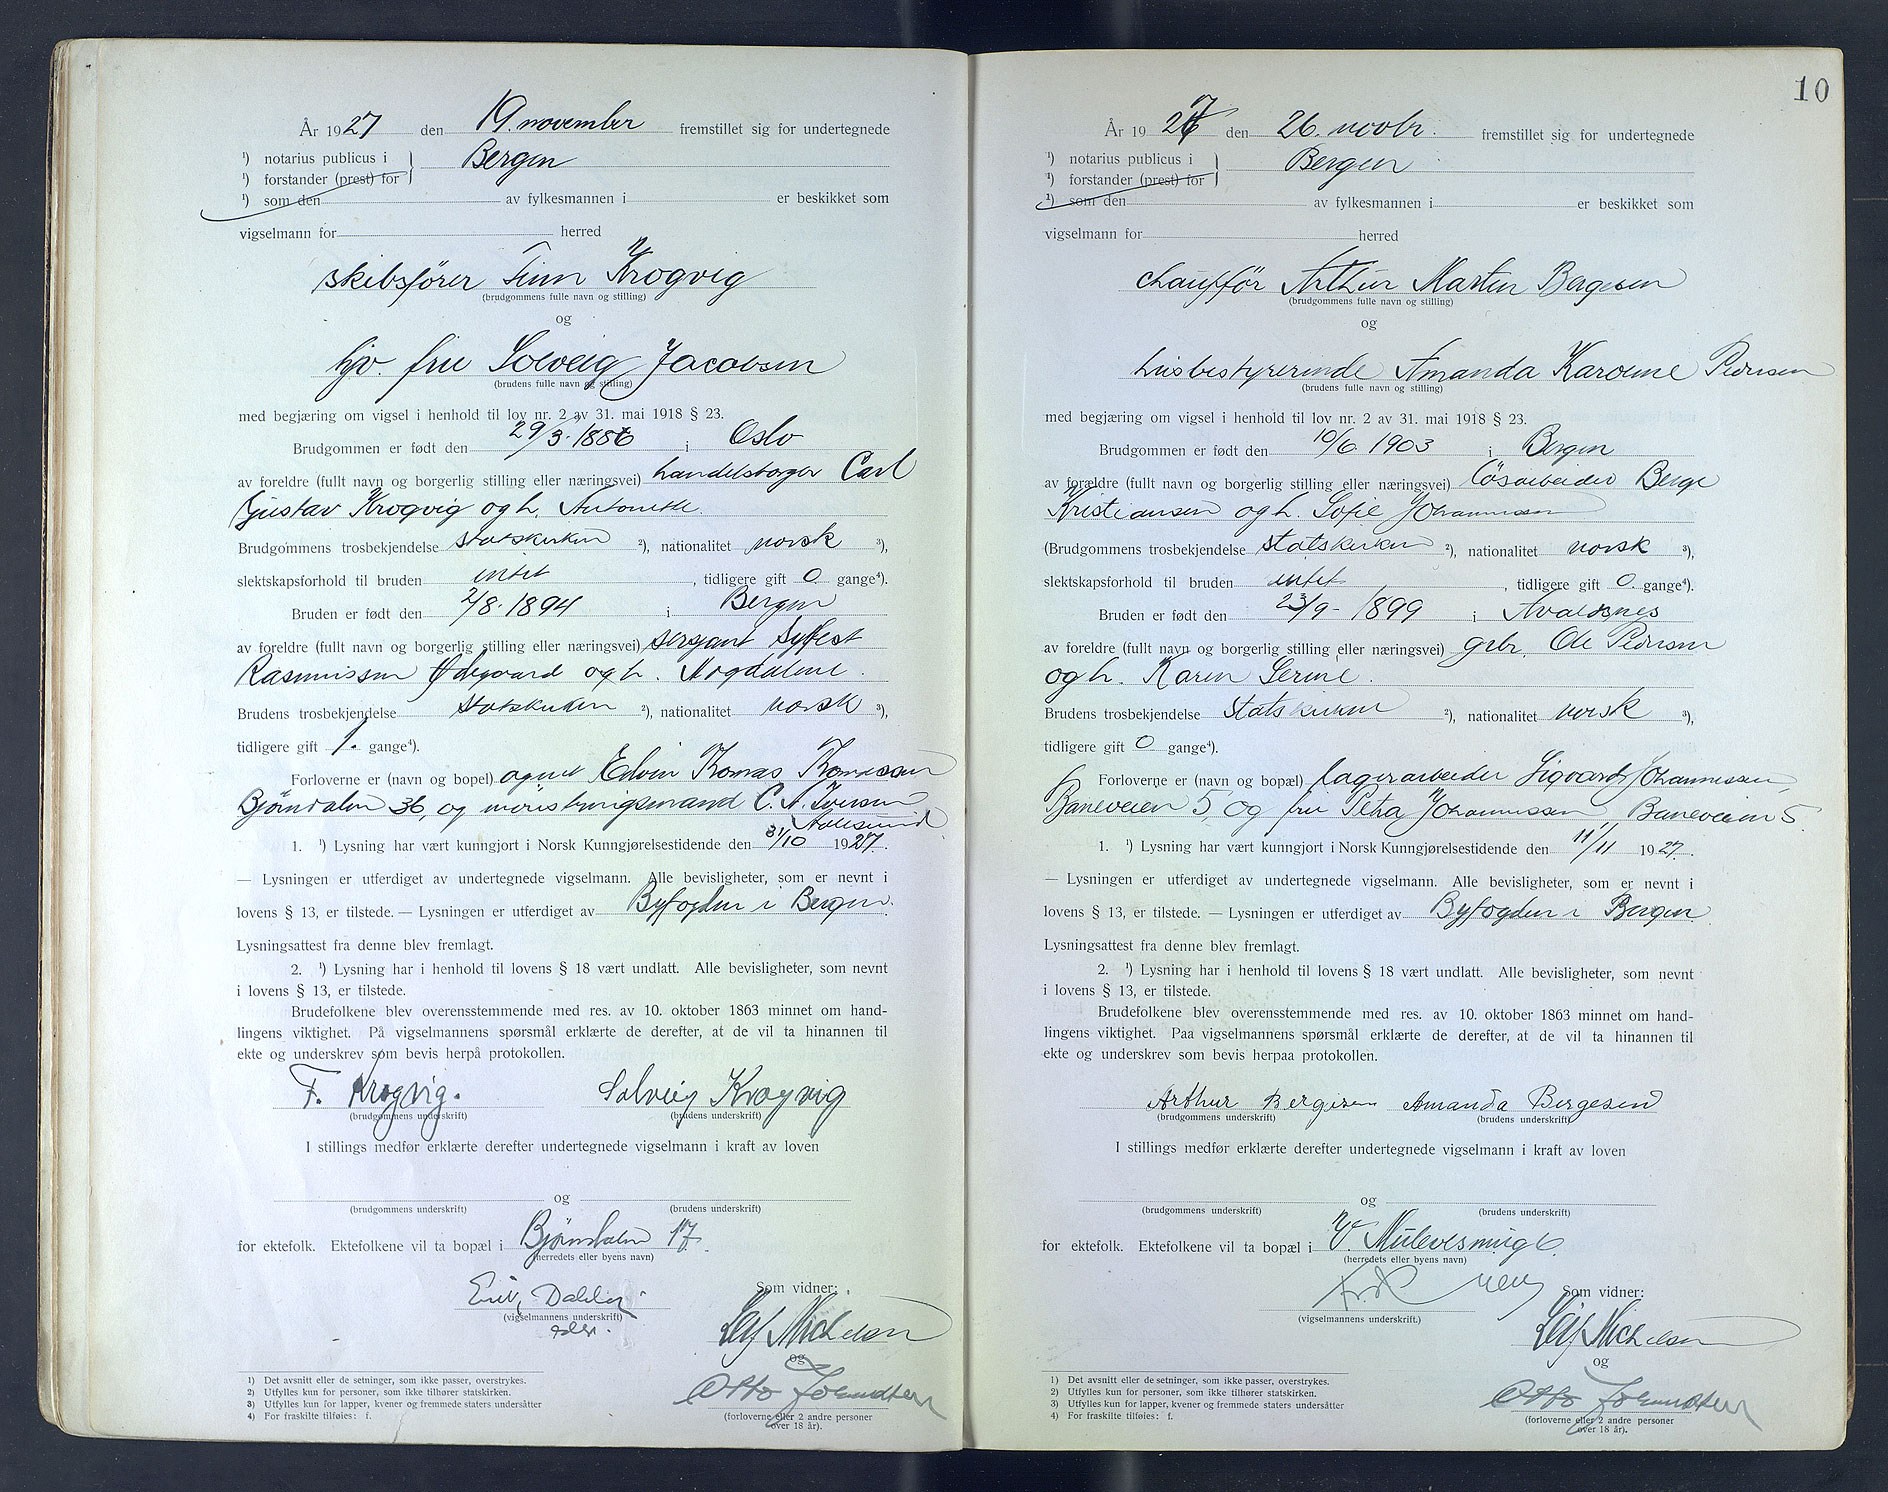 År 1927 den 19. november fremstillet sig for undertegnede
¹) notarius publicus i Bergen
¹) forstander (prest) for
¹) som den av fylkesmannen i er beskikket som
vigselmann for herred
skibsfører Finn Krogvig
(brudgommens fulle navn og stilling)
og
hjv. fru Solveig Jacobsen
(brudens fulle navn og stilling)
med begjæring om vigsel i henhold til lov nr. 2 av 31. mai 1918 § 23.
Brudgommen er født den 29/3. 1886 i Oslo
av foreldre (fullt navn og borgerlig stilling eller næringsvei) handelsborger Carl
Gustav Krogvig og h. Antonette.
Brudgommens trosbekjendelse statskirken ²), nationalitet norsk ³),
slektskapsforhold til bruden intet, tidligere gift 0 gange⁴).
Bruden er født den 2/8. 1894 i Bergen
av foreldre (fullt navn og borgerlig stilling eller næringsvei) sersjant Syffest
Rasmussen Ødegaard og h. Magdalene.
Brudens trosbekjendelse statskirken ²), nationalitet norsk ³),
tidligere gift 1. gange⁴).
Forloverne er (navn og bopel) agent Edvin Tomas Tomassen
Bjørndalen 36, og C. A. Iversen
Aalesund
1. ¹) Lysning har vært kunngjort i Norsk Kunngjørelsestidende den 31/10 1927.
— Lysningen er utferdiget av undertegnede vigselmann. Alle bevisligheter, som er nevnt i
lovens § 13, er tilstede. — Lysningen er utferdiget av Byfogden i Bergen.
Lysningsattest fra denne blev fremlagt.
2. ¹) Lysning har i henhold til lovens § 18 vært undlatt. Alle bevisligheter, som nevnt
i lovens § 13, er tilstede.
Brudefolkene blev overensstemmende med res. av 10. oktober 1863 minnet om hand-
lingens viktighet. På vigselmannens spørsmål erklærte de derefter, at de vil ta hinannen til
ekte og underskrev som bevis herpå protokollen.
F. Krogvig. Solveig Krogvig
(brudgommens underskrift) (brudens underskrift)
I stillings medfør erklærte derefter undertegnede vigselmann i kraft av loven
og
(brudgommens underskrift) (brudens underskrift)
for ektefolk. Ektefolkene vil ta bopæl i Bjørndalen 17.
(herredets eller byens navn)
Som vidner:
(vigselmannens underskrift)
Leif Michelsen
og
Otto
(forloverne eller 2 andre personer
over 18 år).
1) Det avsnitt eller de setninger, som ikke passer, overstrykes.
2) Utfylles kun for personer, som ikke tilhører statskirken.
3) Utfylles kun for lapper, kvener og fremmede staters undersåtter
4) For fraskilte tilføies: f.
10
År 1927 den 26. novbr. fremstillet sig for undertegnede
¹) notarius publicus i Bergen
¹) forstander (prest) for
¹) som den av fylkesmannen i er beskikket som
vigselmann for herred
chauffør Arthur Martin Bergesen
(brudgommens fulle navn og stilling)
og
husbestyrerinde Amanda Karoline Pedersen
(brudens fulle navn og stilling)
med begjæring om vigsel i henhold til lov nr. 2 av 31. mai 1918 § 23.
Brudgommen er født den 10/6 1903 i Bergen
av forældre (fullt navn og borgerlig stilling eller næringsvei) løsarbeider Berge
Kristiansen og h. Sofie Johannessen
(Brudgommens trosbekjendelse statskirken ²), nationalitet norsk ³),
slektskapsforhold til bruden intet, tidligere gift 0. gange⁴).
Bruden er født den 23/9- 1899 i Avaldsnes
av foreldre (fullt navn og borgerlig stilling eller næringsvei) gbr. Ole Pedersen
og h. Karen Serine.
Brudens trosbekjendelse statskirken ²), nationalitet norsk ³),
tidligere gift 0 gange⁴).
Forloverne er (navn og bopæl) lagerarbeider Sigvard Johannessen,
Baneveien 5, og fru Petra Johannessen Baneveien 5.
1. ¹) Lysning har vært kunngjort i Norsk Kunngjørelsestidende den 11/11 1927.
— Lysningen er utferdiget av undertegnede vigselmann. Alle bevisligheter, som er nevnt i
lovens § 13, er tilstede. — Lysningen er utferdiget av Byfogden i Bergen.
Lysningsattest fra denne blev fremlagt.
2. ¹) Lysning har i henhold til lovens § 18 vært undlatt. Alle bevisligheter, som nevnt
i lovens § 13, er tilstede.
Brudefolkene blev overensstemmende med res. av 10. oktober 1863 minnet om hand-
lingens viktighet. Paa vigselmannens spørsmål erklærte de derefter, at de vil ta hinannen til
ekte og underskrev som bevis herpaa protokollen.
Arthur Bergesen Amanda Bergesen
(brudgommens underskrift) (brudens underskrift)
I stillings medfør erklærte derefter undertegnede vigselmann i kraft av loven
og
(brudgommens underskrift) (brudens underskrift)
for ektefolk. Ektefolkene vil ta bopæl i
(herredets eller byens navn)
Som vidner:
(vigselmannens underskrift.)
Leif Michelsen
og
Otto
(forloverne eller 2 andre personer
over 18 år).
1) Det avsnitt eller de setninger, som ikke passer, overstrykes.
2) Utfylles kun for personer, som ikke tilhører statskirken.
3) Utfylles kun for lapper, kvener og fremmede staters undersåtter
4) For fraskilte tilføies: f.